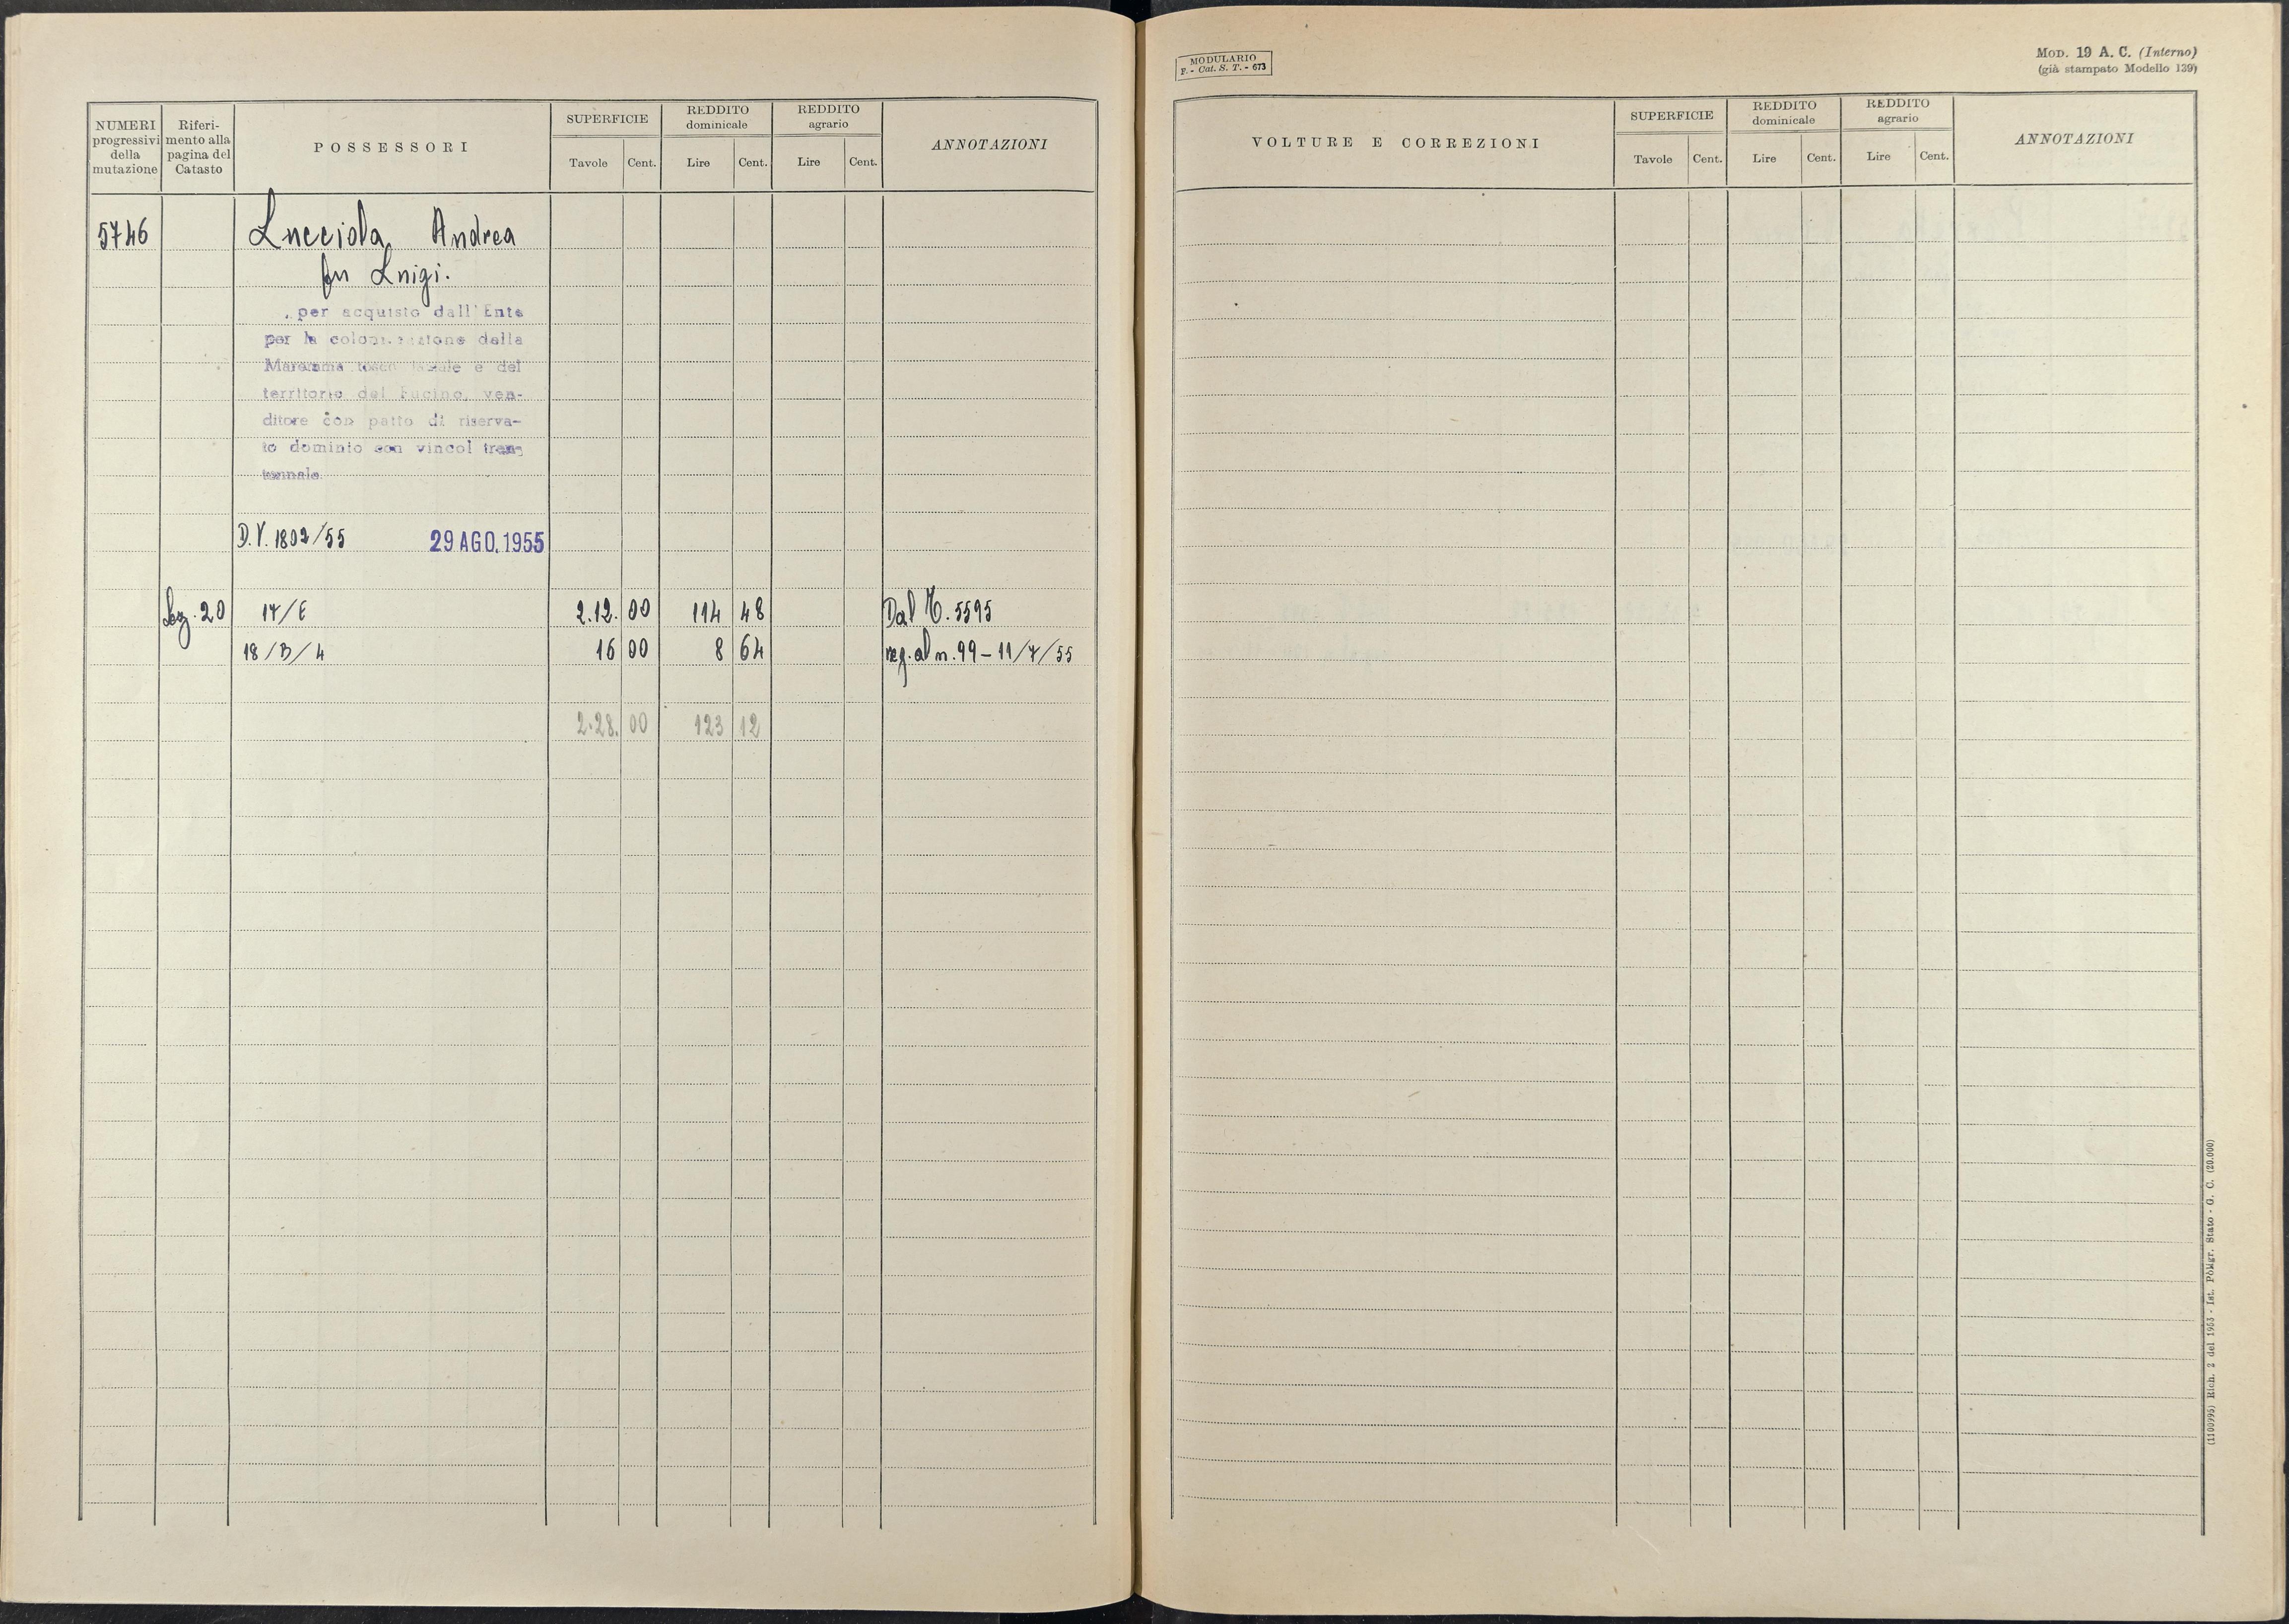 NUMERI progressivi della mutazione
Riferi-mento alla pagina del Catasto
POSSESSORI
SUPERFICIE
Tavole Cent.
REDDITO dominicale
Lire Cent.
REDDITO agrario
Lire Cent.
ANNOTAZIONI
5746 Lucciola Andrea
fu Luigi.
per acquisto dall'Ente
per la colonizzazione della
Maremma tosco laziale e del
territorio del Fucino, ven-
ditore con patto di riserva-
to dominio con vincol tren-
tennale.
D.V. 1802/55 29 AGO. 1955
Sez. 20 17/E 2.12. 00 114 48 Dal C. 5595
18/B/4 16 00 8 64 reg. al n. 99 - 11/7/55
2.28. 00 123 12
MODULARIO
F. - Cat. S. T. - 673
MOD. 19 A. C. (Interno)
(già stampato Modello 139)
VOLTURE E CORREZIONI
SUPERFICIE
Tavole Cent.
REDDITO dominicale
Lire Cent.
REDDITO agrario
Lire Cent.
ANNOTAZIONI
(1100995) Rich. 2 del 1953 - Ist. Poligr. Stato - G. C. (20.000)